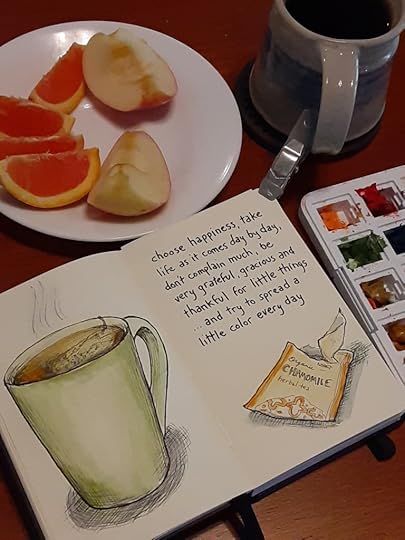 choose happiness, take
life as it comes day by day,
don't complain much, be
very grateful gracious and
thankful for little things
...and try to spread a
little color every day
Organic
CHAMOMILE
herbal tea